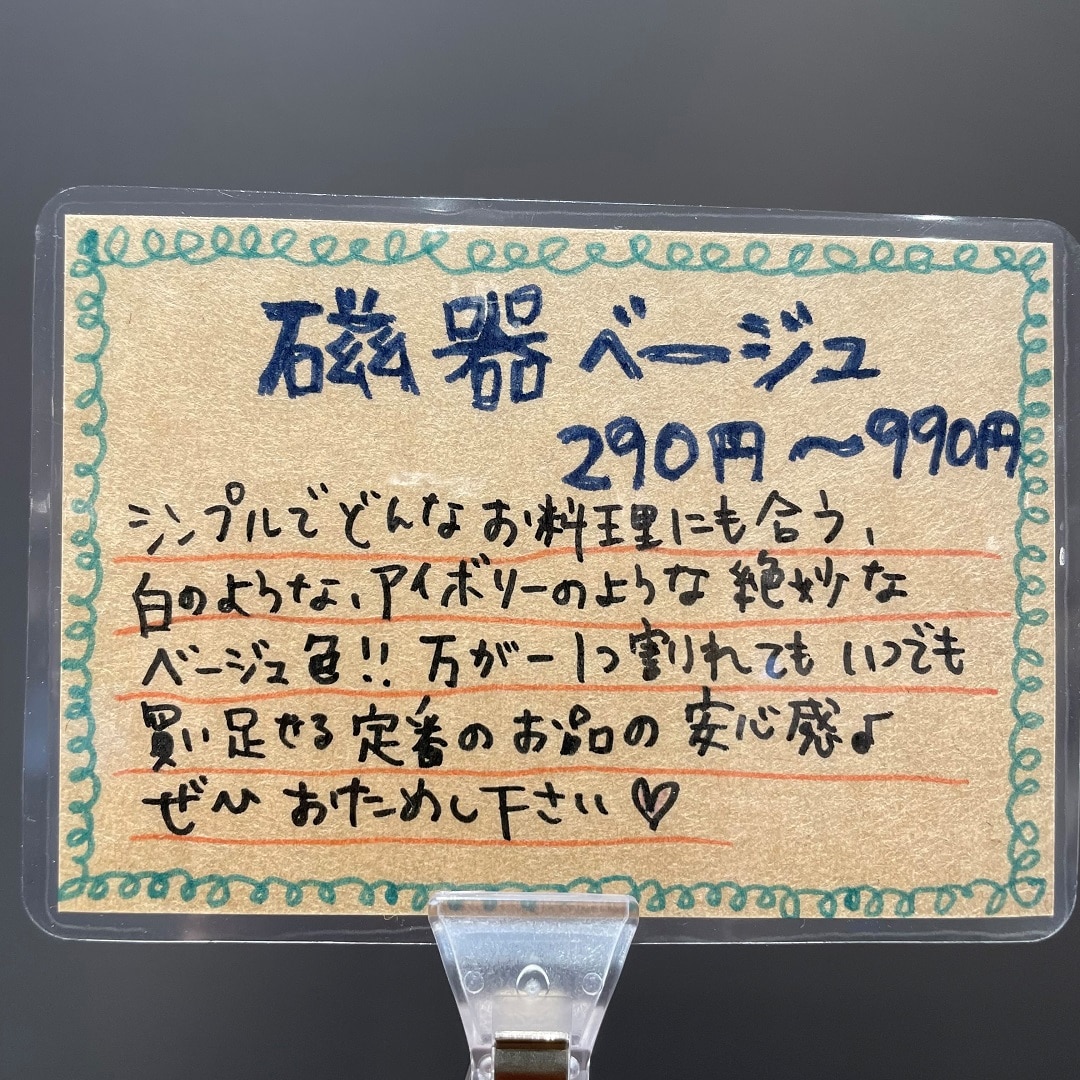 磁器ベージュ
290円〜990円
シンプルでどんなお料理にも合う、
白のような、アイボリーのような絶妙な
ベージュ色!! 万が一1つ割れてもいつでも
買い足せる定番のお品の安心感♪
ぜひおためし下さい♡